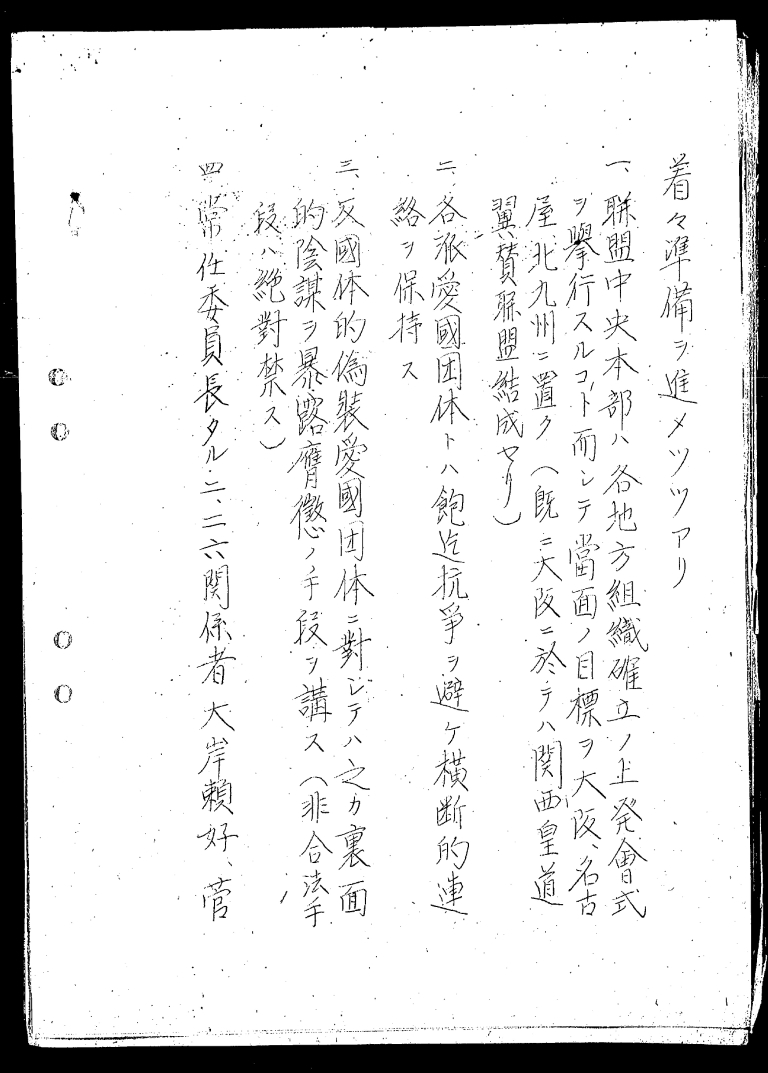 着々準備ヲ進メツツアリ
一、聯盟中央本部ハ各地方組織確立ノ上発會式
ヲ擧行スルコト而シテ當面ノ目標ヲ大阪、名古
屋、北九州ニ置ク（既ニ大阪ニ於テハ関西皇道
翼賛聯盟結成セリ）
二、各派愛國団体トハ飽迄抗爭ヲ避ケ横断的連
絡ヲ保持ス
三、反國体的偽装愛國団体ニ對シテハ之カ裏面
的陰謀ヲ暴露膺懲ノ手段ヲ講ス（非合法手
段ハ絶對禁ス）
四、常任委員長タル二、二六関係者大岸頼好、菅